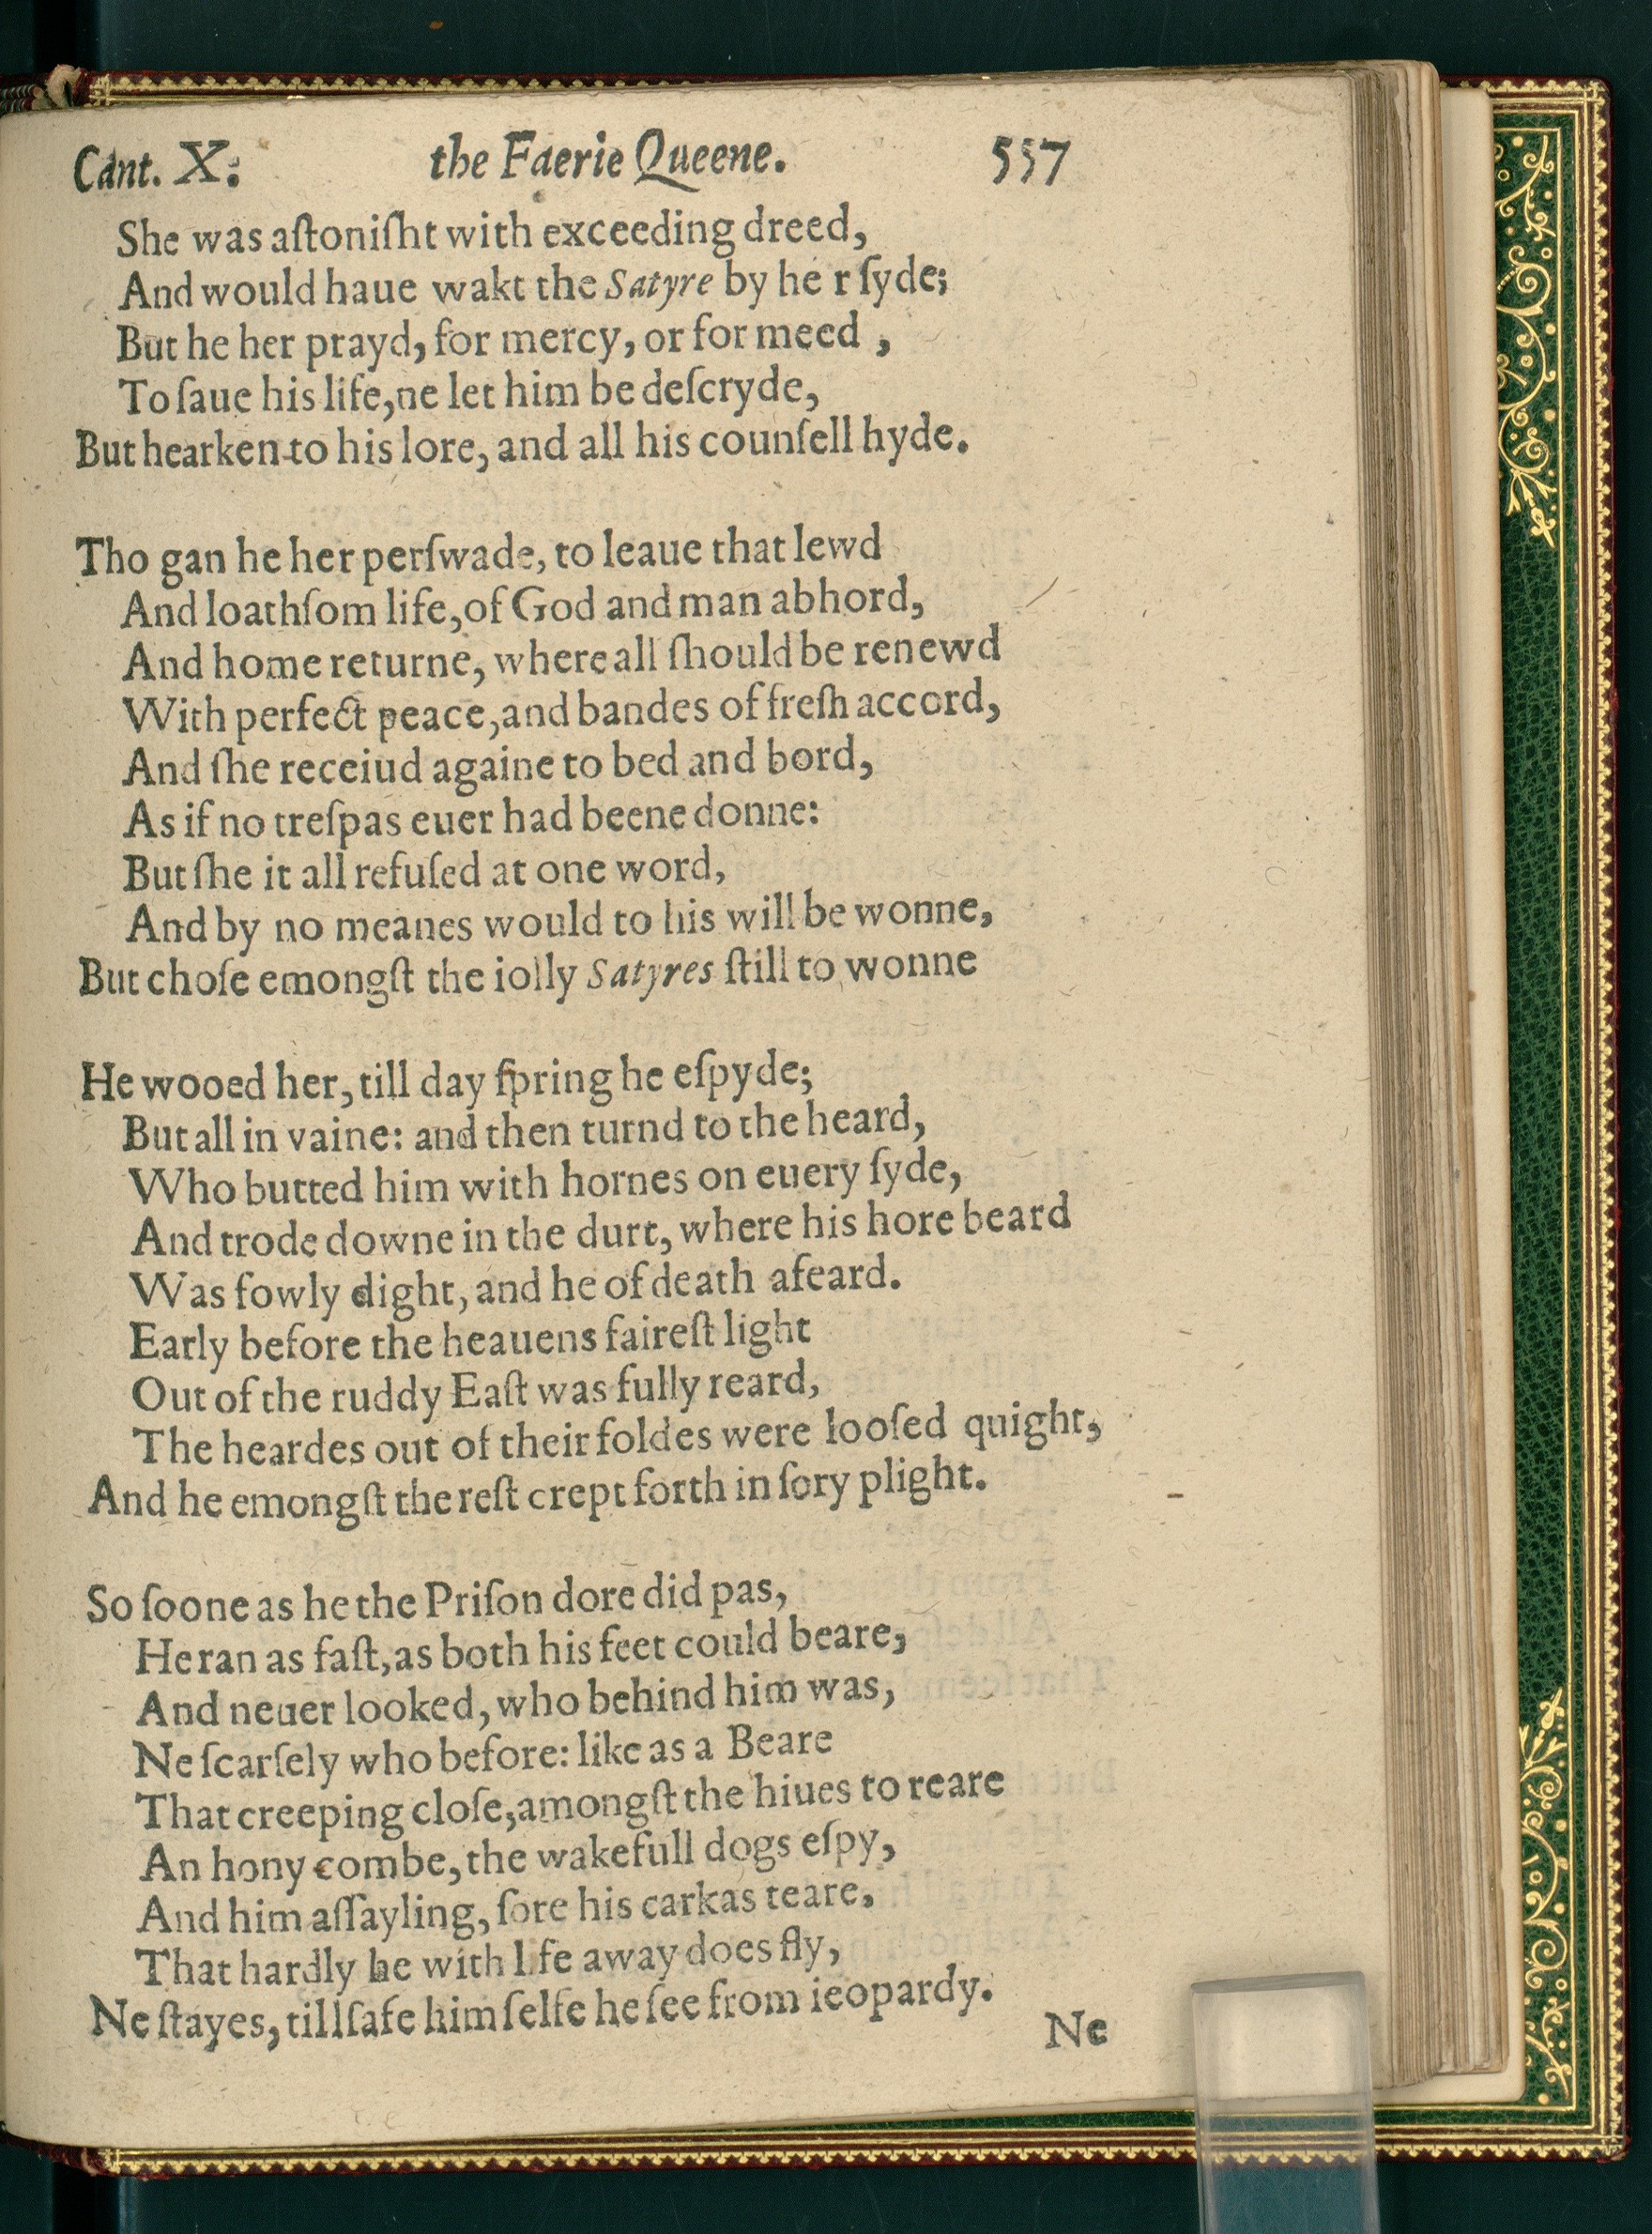 Cant. X: the Faerie Queene. 557
She was aſtoniſht with exceeding dreed,
And would haue wakt the Satyre by he r ſyde;
But he her prayd, for mercy, or for meed ,
To ſaue his life, ne let him be deſcryde,
But hearken to his lore, and all his counſell hyde.
Tho gan he her perſwade, to leaue that lewd
And loathſom life, of God and man abhord,
And home returne, where all ſhould be renewd
With perfect peace, and bandes of freſh accord,
And ſhe receiud againe to bed and bord,
As if no treſpas euer had beene donne:
But ſhe it all refuſed at one word,
And by no meanes would to his will be wonne,
But choſe emongſt the iolly Satyres ſtill to wonne
He wooed her, till day ſpring he eſpyde;
But all in vaine: and then turnd to the heard,
Who butted him with hornes on euery ſyde,
And trode downe in the durt, where his hore beard
Was fowly dight, and he of death afeard.
Early before the heauens faireſt light
Out of the ruddy Eaſt was fully reard,
The heardes out of their foldes were looſed quight,
And he emongſt the reſt crept forth in ſory plight.
So ſoone as he the Priſon dore did pas,
He ran as faſt, as both his feet could beare,
And neuer looked, who behind him was,
Ne ſcarſely who before: like as a Beare
That creeping cloſe, amongſt the hiues to reare
An hony combe, the wakefull dogs eſpy,
And him aſſayling, ſore his carkas teare,
That hardly he with life away does fly,
Ne ſtayes, till ſafe him ſelfe he ſee from ieopardy.
Ne